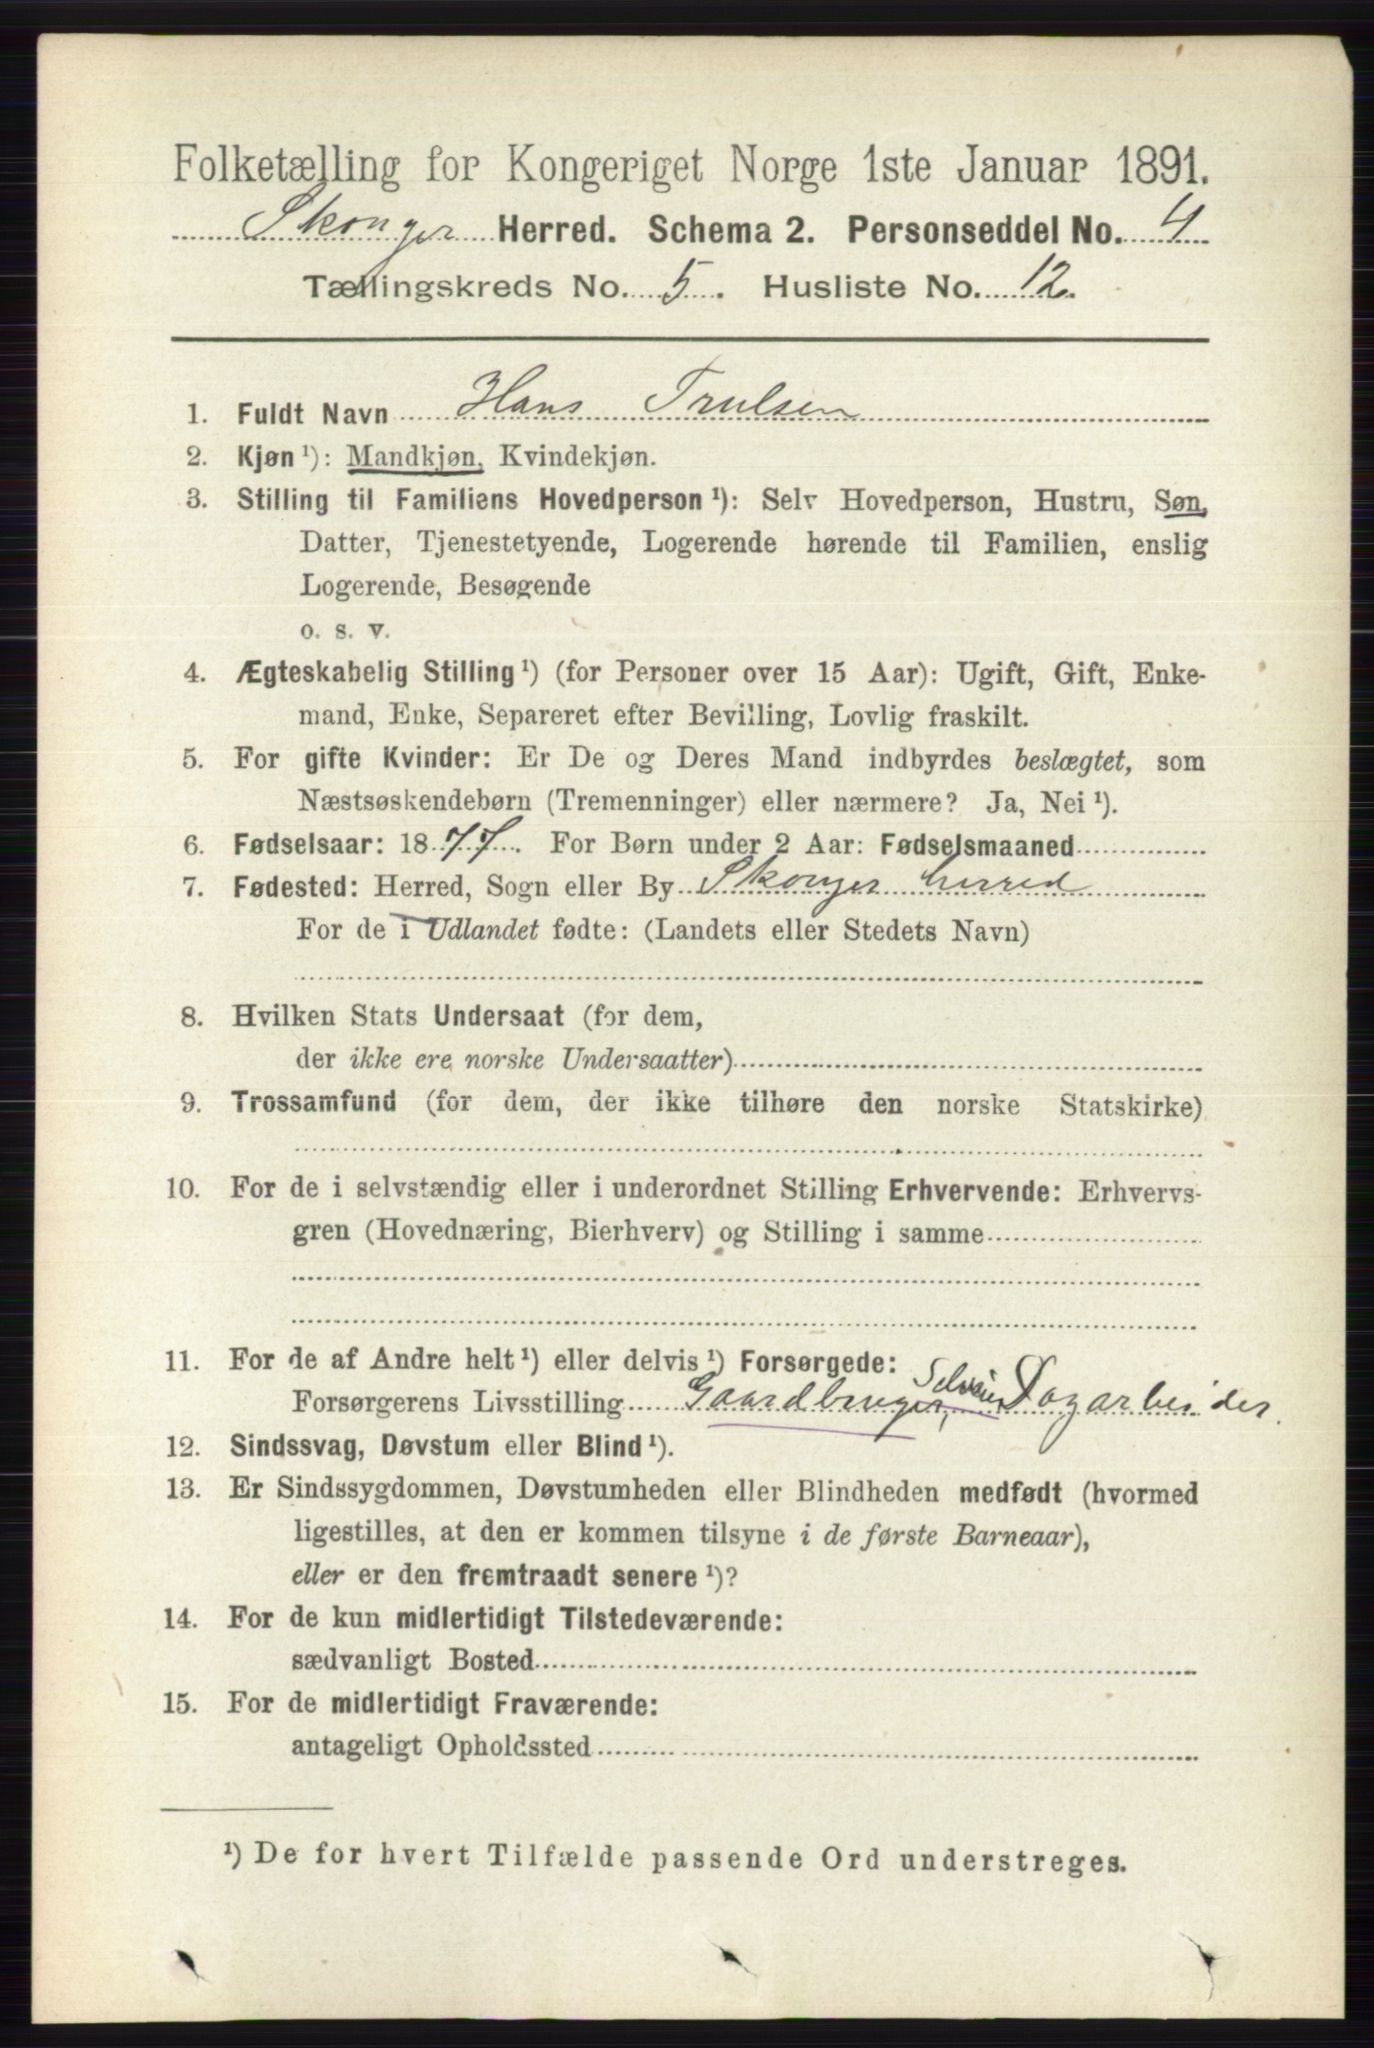 Folketælling for Kongeriget Norge 1ste Januar 1891.
Skonger Herred. Schema 2. Personseddel No. 4
Tællingskreds No. 5. Husliste No. 12.
1. Fuldt Navn Hans Trulsen
2. Kjøn ¹): Mandkjøn, Kvindekjøn.
3. Stilling til Familiens Hovedperson ¹): Selv Hovedperson, Hustru, Søn,
Datter, Tjenestetyende, Logerende hørende til Familien, enslig
Logerende, Besøgende
o. s. v.
4. Ægteskabelig Stilling ¹) (for Personer over 15 Aar): Ugift, Gift, Enke-
mand, Enke, Separeret efter Bevilling, Lovlig fraskilt.
5. For gifte Kvinder: Er De og Deres Mand indbyrdes beslægtet, som
Næstsøskendebørn (Tremenninger) eller nærmere? Ja, Nei ¹).
6. Fødselsaar: 1877. For Børn under 2 Aar: Fødselsmaaned
7. Fødested: Herred, Sogn eller By Skonger herred
For de i Udlandet fødte: (Landets eller Stedets Navn)
8. Hvilken Stats Undersaat (for dem,
der ikke ere norske Undersaatter)
9. Trossamfund (for dem, der ikke tilhøre den norske Statskirke)
10. For de i selvstændig eller i underordnet Stilling Erhvervende: Erhvervs-
gren (Hovednæring, Bierhverv) og Stilling i samme
11. For de af Andre helt ¹) eller delvis ¹) Forsørgede:
Forsørgerens Livsstilling Gaardbruger, Selveier Dagarbeider.
12. Sindssvag, Døvstum eller Blind ¹).
13. Er Sindssygdommen, Døvstumheden eller Blindheden medfødt (hvormed
ligestilles, at den er kommen tilsyne i de første Barneaar),
eller er den fremtraadt senere ¹)?
14. For de kun midlertidigt Tilstedeværende:
sædvanligt Bosted
15. For de midlertidigt Fraværende:
antageligt Opholdssted
¹) De for hvert Tilfælde passende Ord understreges.